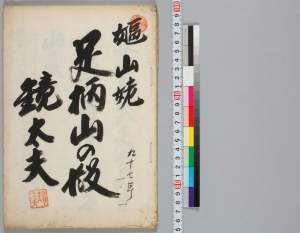 嫗山姥
足柄山の段
鏡太夫
九十七